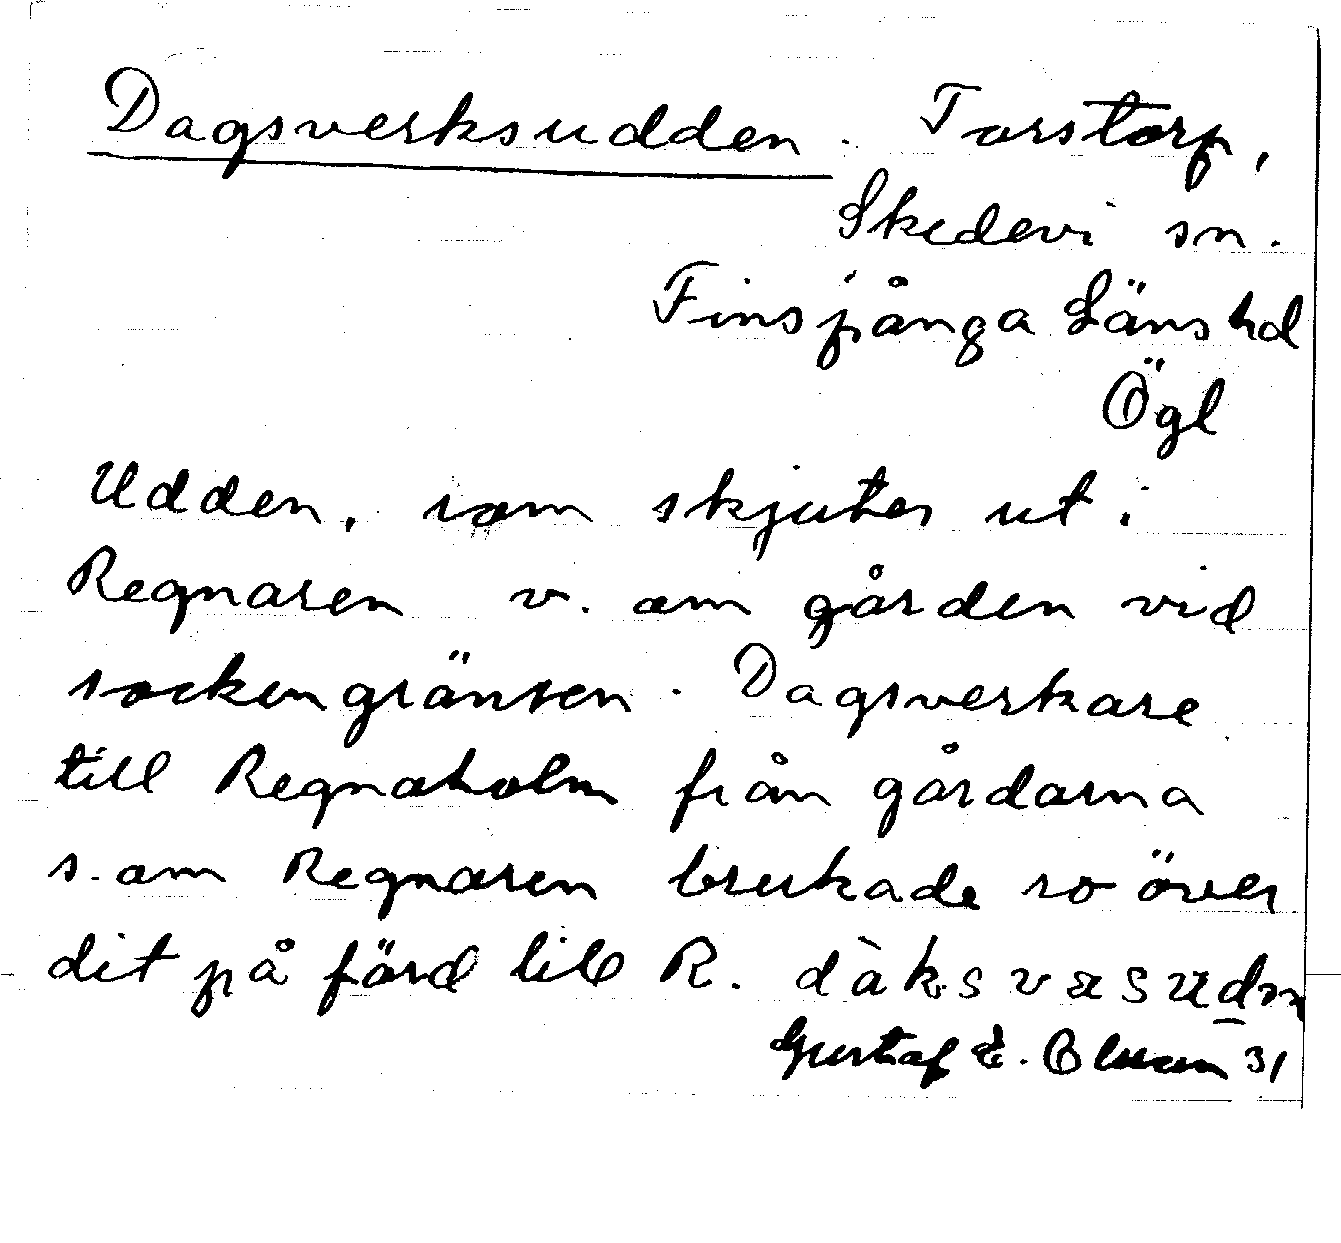 Dagsverksudden. Torstorp,
Skedevi sn.
Finspånga Läns hd
Ögl
Udden, som skjuter ut i
Regnaren v. om gården vid
sockengränsen. Dagsverkare
till Regnaholm från gårdarna
s. om Regnaren brukade ro över
dit på färd till R. dàksvæsudn
Gustaf E. Olsson 31